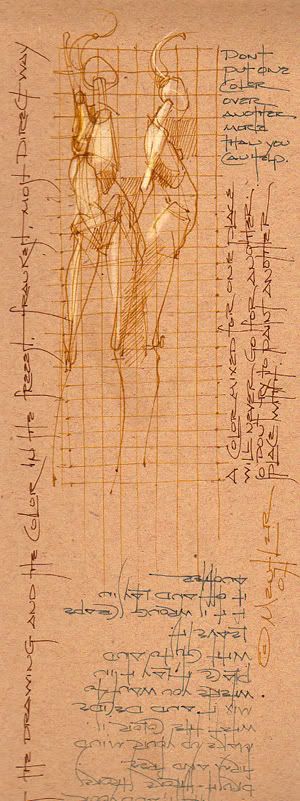 THE DRAWING AND THE COLOR IN THE FREEST, FRANKEST, MOST DIRECT WAY
DON'T
PUT ONE
COLOR
OVER
ANOTHER
MORE
THAN YOU
CAN HELP.
A COLOR MIXED FOR ONE PLACE
WILL NEVER GO FOR ANOTHER,
SO DON'T TRY TO PAINT ANOTHER
PLACE WITH IT
© MENTLER
AND YOUR
BRUSH
FIRM AND FREE
MAKE UP YOUR MIND
WHAT THE COLOR IS
MIX IT AND DECIDE
WHERE YOU WANT TO
PLACE IT, LAY IT IN
WITH GUSTO AND
LEAVE IT
IF IT IS WRONG SCRAPE
IT OFF AND LAY IN
ANOTHER